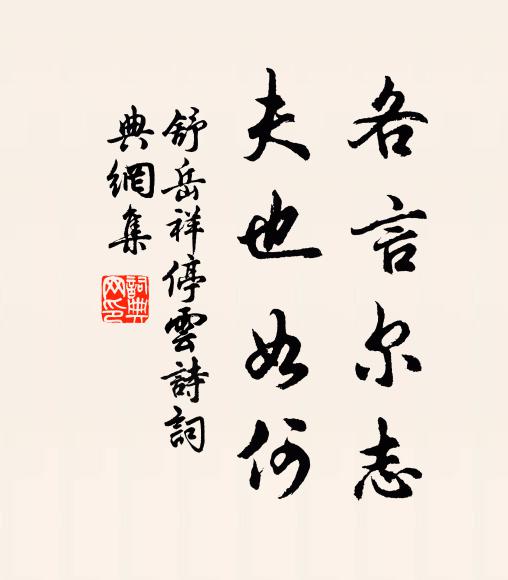 各言尔志
夫也如何
舒岳祥停雲詩詞
典網集
詞典
网印